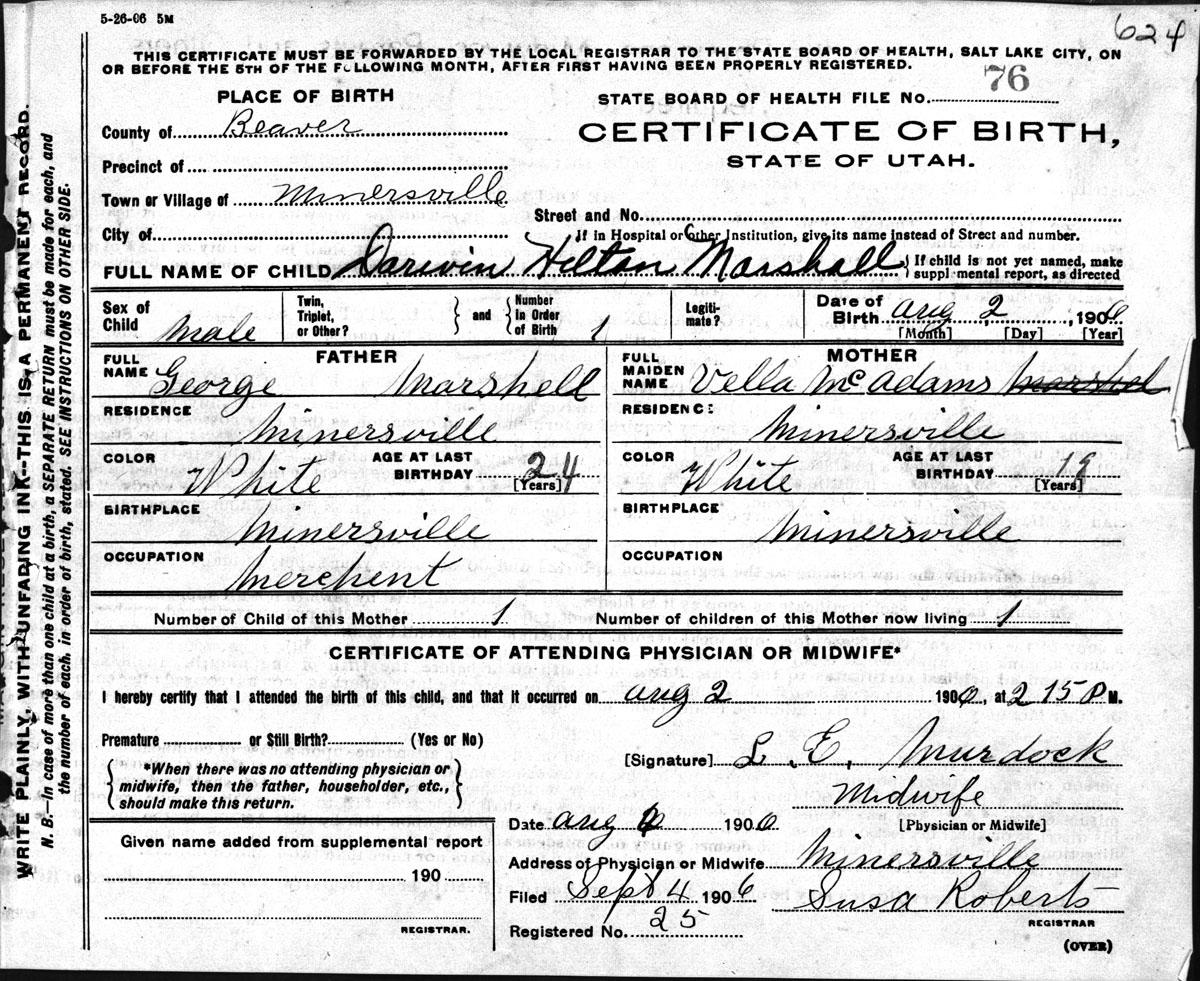 5-26-06 5M
624
THIS CERTIFICATE MUST BE FORWARDED BY THE LOCAL REGISTRAR TO THE STATE BOARD OF HEALTH, SALT LAKE CITY, ON
OR BEFORE THE 5TH OF THE FOLLOWING MONTH, AFTER FIRST HAVING BEEN PROPERLY REGISTERED.
WRITE PLAINLY, WITH UNFADING INK—THIS IS A PERMANENT RECORD.
N. B.—In case of more than one child at a birth, a SEPARATE RETURN must be made for each, and
the number of each, in order of birth, stated. SEE INSTRUCTIONS ON OTHER SIDE.
PLACE OF BIRTH
County of Beaver
Precinct of
Town or Village of Minersville
City of
STATE BOARD OF HEALTH FILE No. 76
CERTIFICATE OF BIRTH,
STATE OF UTAH.
Street and No.
If in Hospital or Other Institution, give its name instead of Street and number.
FULL NAME OF CHILD Darwin Hilton Marshall { If child is not yet named, make
supplmental report, as directed
Sex of Child Male
Twin, Triplet, or Other? } and { Number In Order of Birth 1
Legiti-mate?
Date of Birth Aug 2, 1906
[Month] [Day] [Year]
FATHER
FULL NAME George Marshell
RESIDENCE Minersville
COLOR White AGE AT LAST BIRTHDAY 24
[Years]
BIRTHPLACE Minersville
OCCUPATION Merchent
MOTHER
FULL MAIDEN NAME Vella McAdams
RESIDENCE Minersville
COLOR White AGE AT LAST BIRTHDAY 19
[Years]
BIRTHPLACE Minersville
Number of Child of this Mother 1 Number of children of this Mother now living 1
CERTIFICATE OF ATTENDING PHYSICIAN OR MIDWIFE*
I hereby certify that I attended the birth of this child, and that it occurred on Aug 2 1906, at 2 15 P M.
Premature or Still Birth? (Yes or No)
{ *When there was no attending physician or
midwife, then the father, householder, etc.,
should make this return. }
[Signature] L. E. Murdock
Midwife
[Physician or Midwife]
Date Aug 1906
Address of Physician or Midwife Minersville
Given name added from supplemental report
190
REGISTRAR.
Filed Sept 4 1906 Susa Roberts
REGISTRAR
Registered No. 25
(OVER)